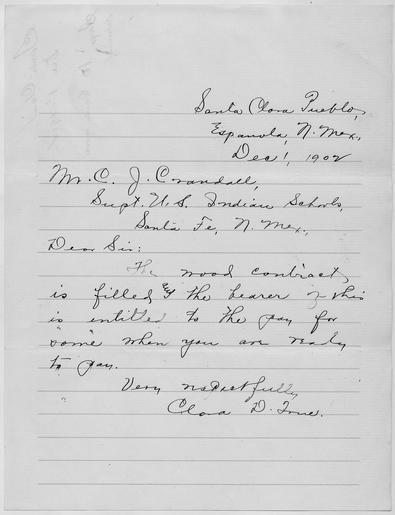 Santa Clara Pueblo,
Espanola, N. Mex.,
Dec 1, 1902
Mr. C. J. Crandall,
Supt. U. S. Indian Schools,
Santa Fe, N. Mex.,
Dear Sir:
The wood contract,
is filled and the bearer of this
is entitled to the pay for
same when you are ready
to pay.
Very respectfully
Clara D. True.